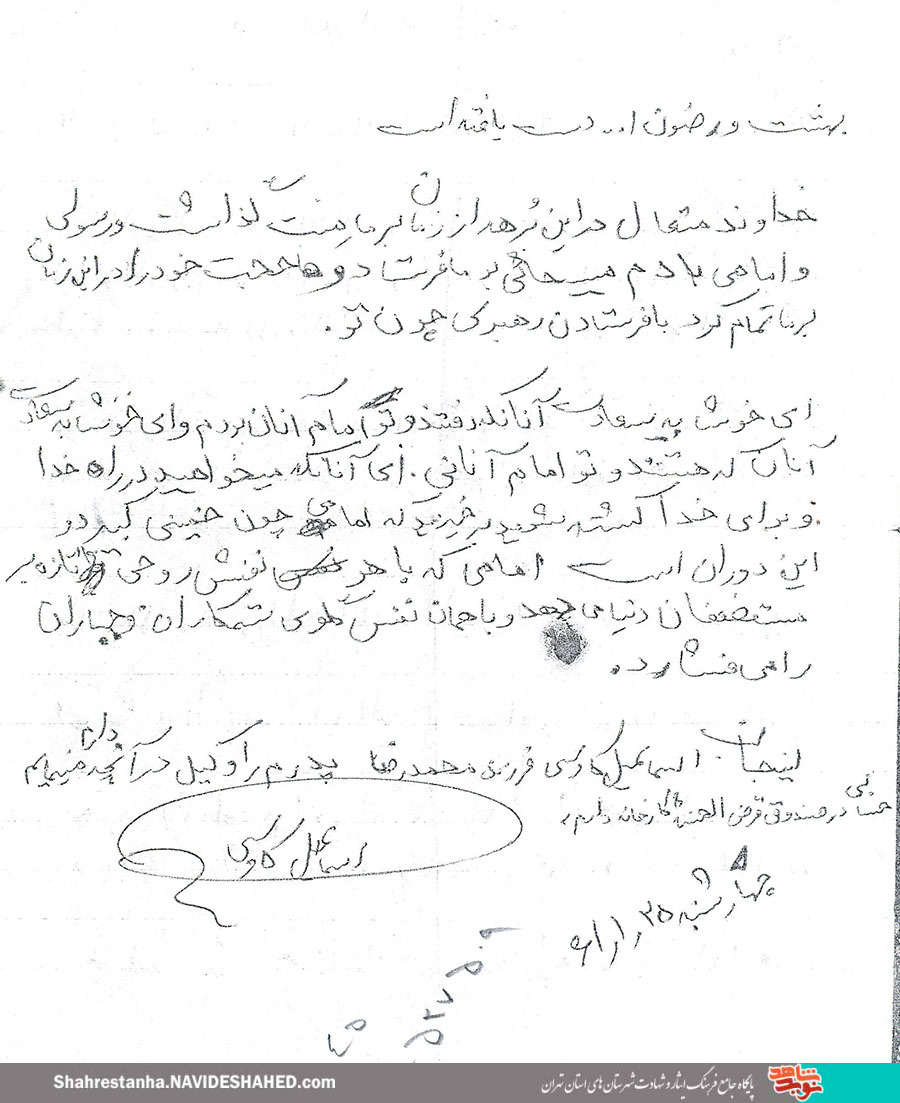 بهشت و رضوان ا... دست یافته است
خداوند متعال در این برهه از زمان بر ما منت گذاشت و رسولی
و امامی با دم مسیحائی بر ما فرستاد و حجت خود را در این زمان
بر ما تمام کرد با فرستادن رهبری چون تو.
ای خوش به سعادت آنانکه رفتند و تو امام آنان بودی و ای خوش به سعادت
آنان که هستند و تو امام آنانی. ای آنانکه میخواهید در راه خدا
و برای خدا کشته شوید برخیزید که امامی چون خمینی کبیر در
این دوران است امامی که با هر نفسش روحی تازه بر
مستضعفان دنیا می دهد و با همان نفس گلوی ستمکاران و جباران
را می فشارد.
اینجانب اسماعیل کاوسی فرزند محمدرضا پدرم را وکیل در آنچه دارم مینمایم
حسابی در صندوق قرض الحسنه کارخانه دارم
اسماعیل کاوسی
چهارشنبه ۲۵/۱/۶۱
Shahrestanha.NAVIDESHAHED.com
پایگاه جامع فرهنگ ایثار و شهادت شهرستان های استان تهران
نوید شاهد